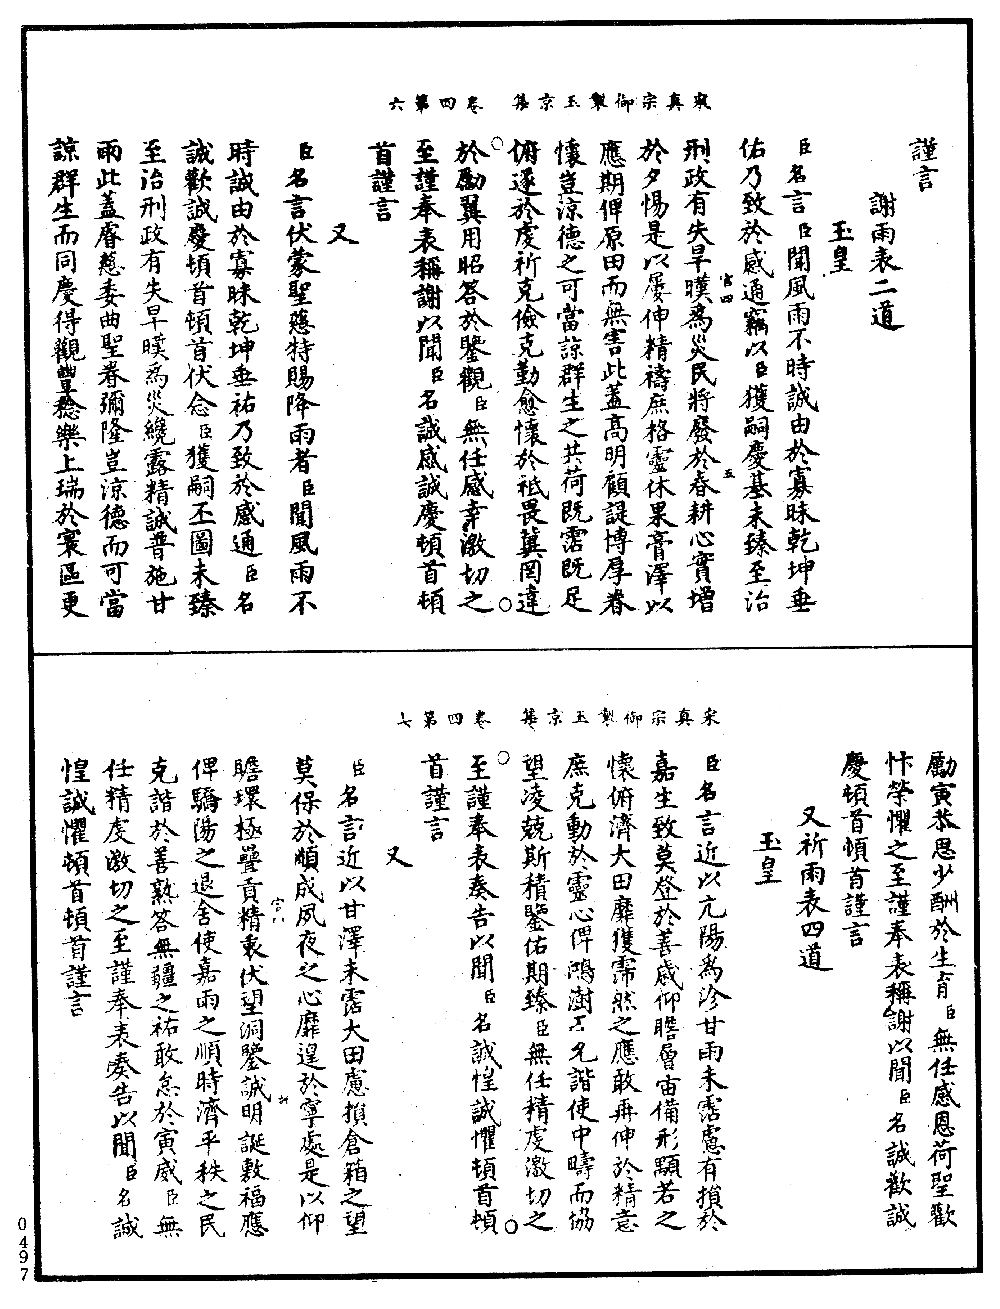 宋真宗御製玉京集　卷四第六
謹言
謝雨表二道
玉皇
臣名言臣聞風雨不時誠由於寡昧乾坤垂
佑乃致於感通竊以臣獲嗣慶基未臻至治
刑政有失旱暵為災民將廢於春耕心實增
於夕惕是以屢伸精禱庶格靈休果膏澤以
應期俾原田而無害此蓋高明顧諟博厚眷
懷豈涼德之可當諒群生之共荷既霑既足
俯遂於虔祈克儉克勤愈懷於祗畏冀罔違
於勵翼用昭答於鑒觀臣無任感幸激切之
至謹奉表稱謝以聞臣名誠感誠慶頓首頓
首謹言
又
臣名言伏蒙聖慈特賜降雨者臣聞風雨不
時誠由於寡昧乾坤垂祐乃致於感通臣名
誠歡誠慶頓首頓首伏念臣獲嗣丕圖未臻
至治刑政有失旱暵為災纔露精誠普施甘
雨此蓋睿慈委曲聖眷彌隆豈涼德而可當
諒群生而同慶得觀豐稔樂上瑞於寰區更
宋真宗御製玉京集　卷四第七
勵寅恭思少酬於生育臣無任感恩荷聖歡
忭榮懼之至謹奉表稱謝以聞臣名誠歡誠
慶頓首頓首謹言
又祈雨表四道
玉皇
臣名言近以亢陽為沴甘雨未霑慮有損於
嘉生致莫登於善歲仰瞻層宙備形顒若之
懷俯濟大田靡獲霈然之應敢再伸於精意
庶克動於靈心俾鴻澍之允諧使中疇而協
望凌兢斯積鑒佑期臻臣無任精虔激切之
至謹奉表奏告以聞臣名誠惶誠懼頓首頓
首謹言
又
臣名言近以甘澤未霑大田慮損倉箱之望
莫保於順成夙夜之心靡遑於寧處是以仰
瞻環極疊貢精衷伏望洞鑒誠明誕敷福應
俾驕陽之退舍使嘉雨之順時濟平秩之民
克諧於善熟答無疆之祐敢怠於寅威臣無
任精虔激切之至謹奉表奏告以聞臣名誠
惶誠懼頓首頓首謹言
0497